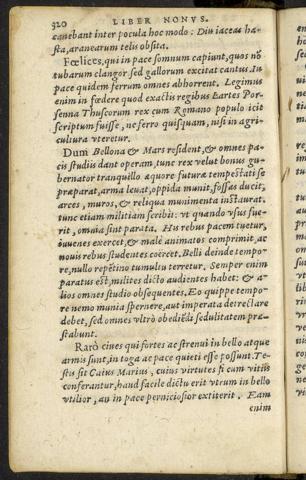 320 LIBER NONVS.
canebant inter pocula hoc modo: Diu iaceas ha-
sta, aranearum telis obsita.
Fœlices, qui in pace somnum capiunt, quos nõ
tubarum clangor sed gallorum excitat cantus. In
pace quidem ferrum omnes abhorrent. Legimus
enim in fœdere quod exactis regibus Lartes Por-
senna Thuscorum rex cum Romano populo icit
scriptum fuisse, ne ferro quisquam, nisi in agri-
cultura vteretur.
Dum Bellona & Mars resident, & omnes pa-
cis studiis dant operam, tunc rex velut bonus gu-
bernator tranquillo æquore futuræ tempestati se
præparat, arma leuat, oppida munit, fossas ducit,
arces, muros, & reliqua munimenta instaurat.
tunc etiam militiam scribit: vt quando vsus fue-
rit, omnia sint parata. His rebus pacem tuetur,
iuuenes exercet, & malè animatos comprimit, ac
nouis rebus studentes coërcet. Belli deinde tempo-
re, nullo repẽtino tumultu terretur. Semper enim
paratus est, milites dicto audientes habet: & a-
lios omnes studio obsequentes. Eo quippe tempo-
re nemo munia spernere, aut imperata detrectare
debet, sed omnes vltrò obediẽdi sedulitatem præ-
stabunt.
Rarò ciues qui fortes ac strenui in bello atque
armis sunt, in toga ac pace quieti esse possunt. Te-
stis sit Caius Marius, cuius virtutes si cum vitiis
conferantur, haud facile dictu erit vtrum in bello
vtilior, an in pace perniciosior extiterit. Eam
enim